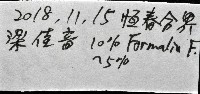 2018.11.15 恆春合界
梁佳音 10% Formalin F.
~5%